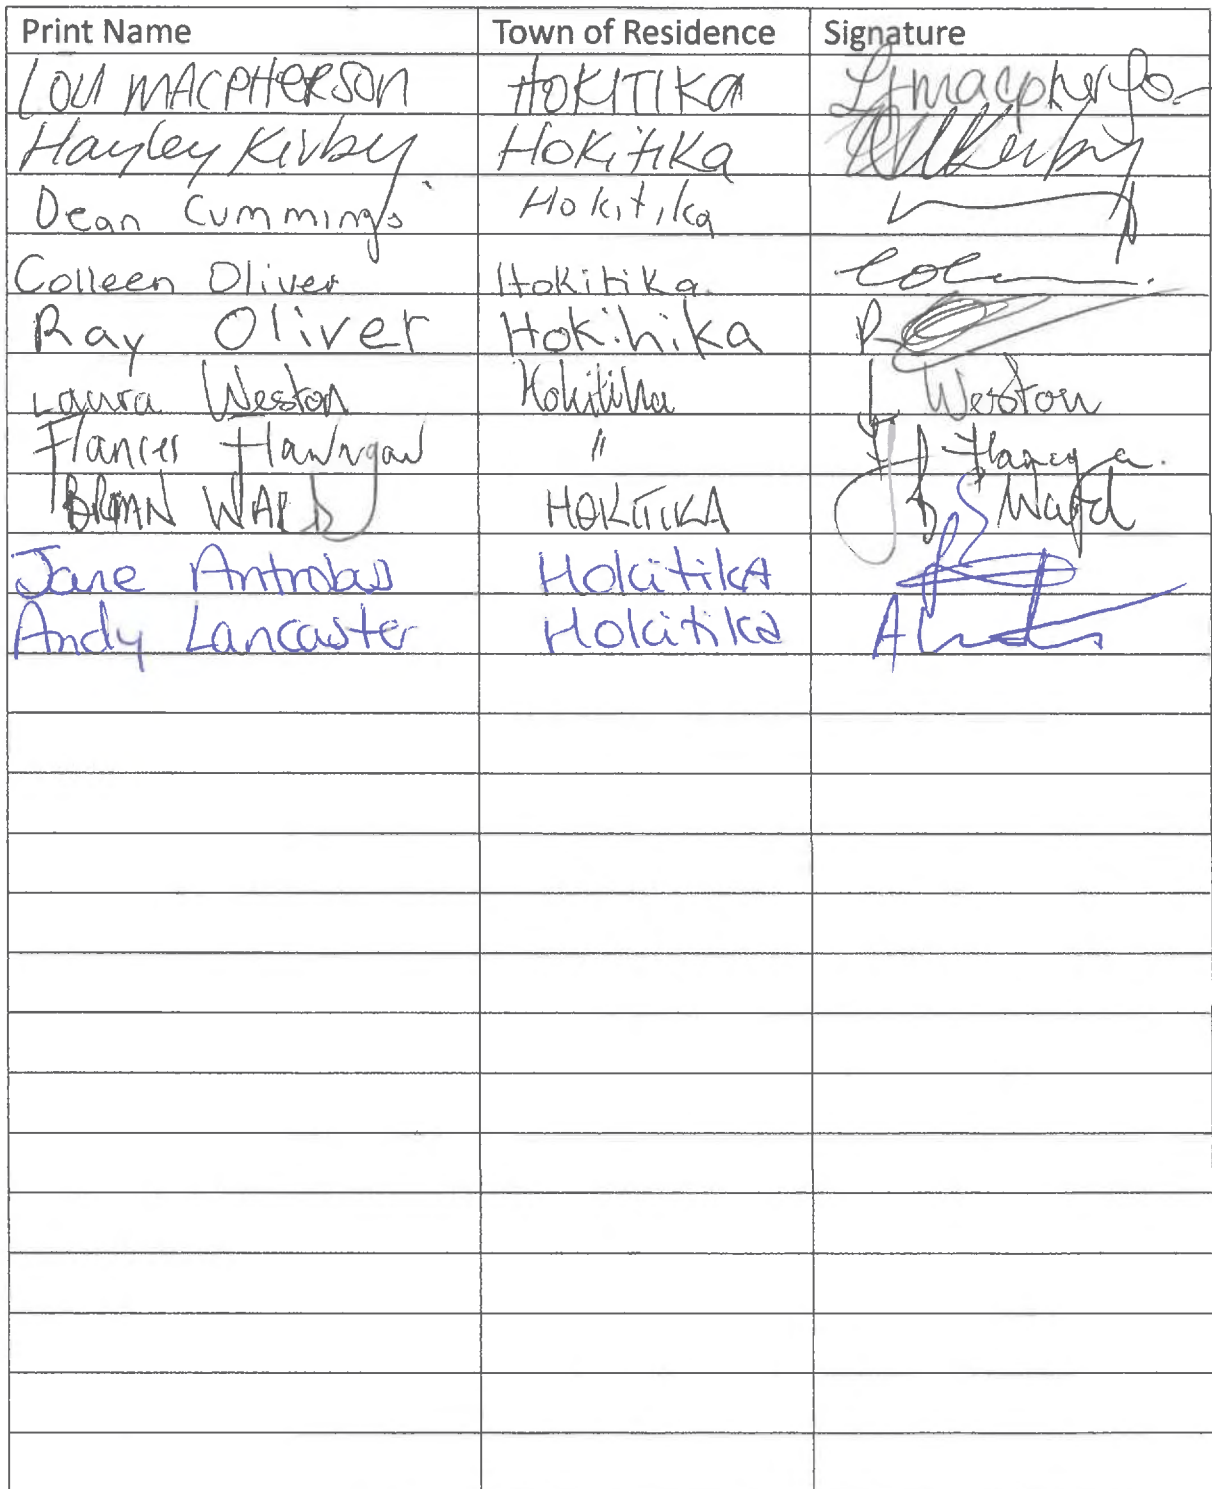 Print Name Town of Residence Signature
LOU MACPHERSON HOKITIKA LJmacpherson
Hayley Kirby Hokitika Kirby
Dean Cummings Hokitika
Colleen Oliver Hokitika.
Ray Oliver Hokihika
Laura Weston Hokitika L Weston
Frances Flanagan "
BRIAN WARD HOKITIKA B Ward
Jane Antrobus HokitikA
Andy Lancaster Hokitika